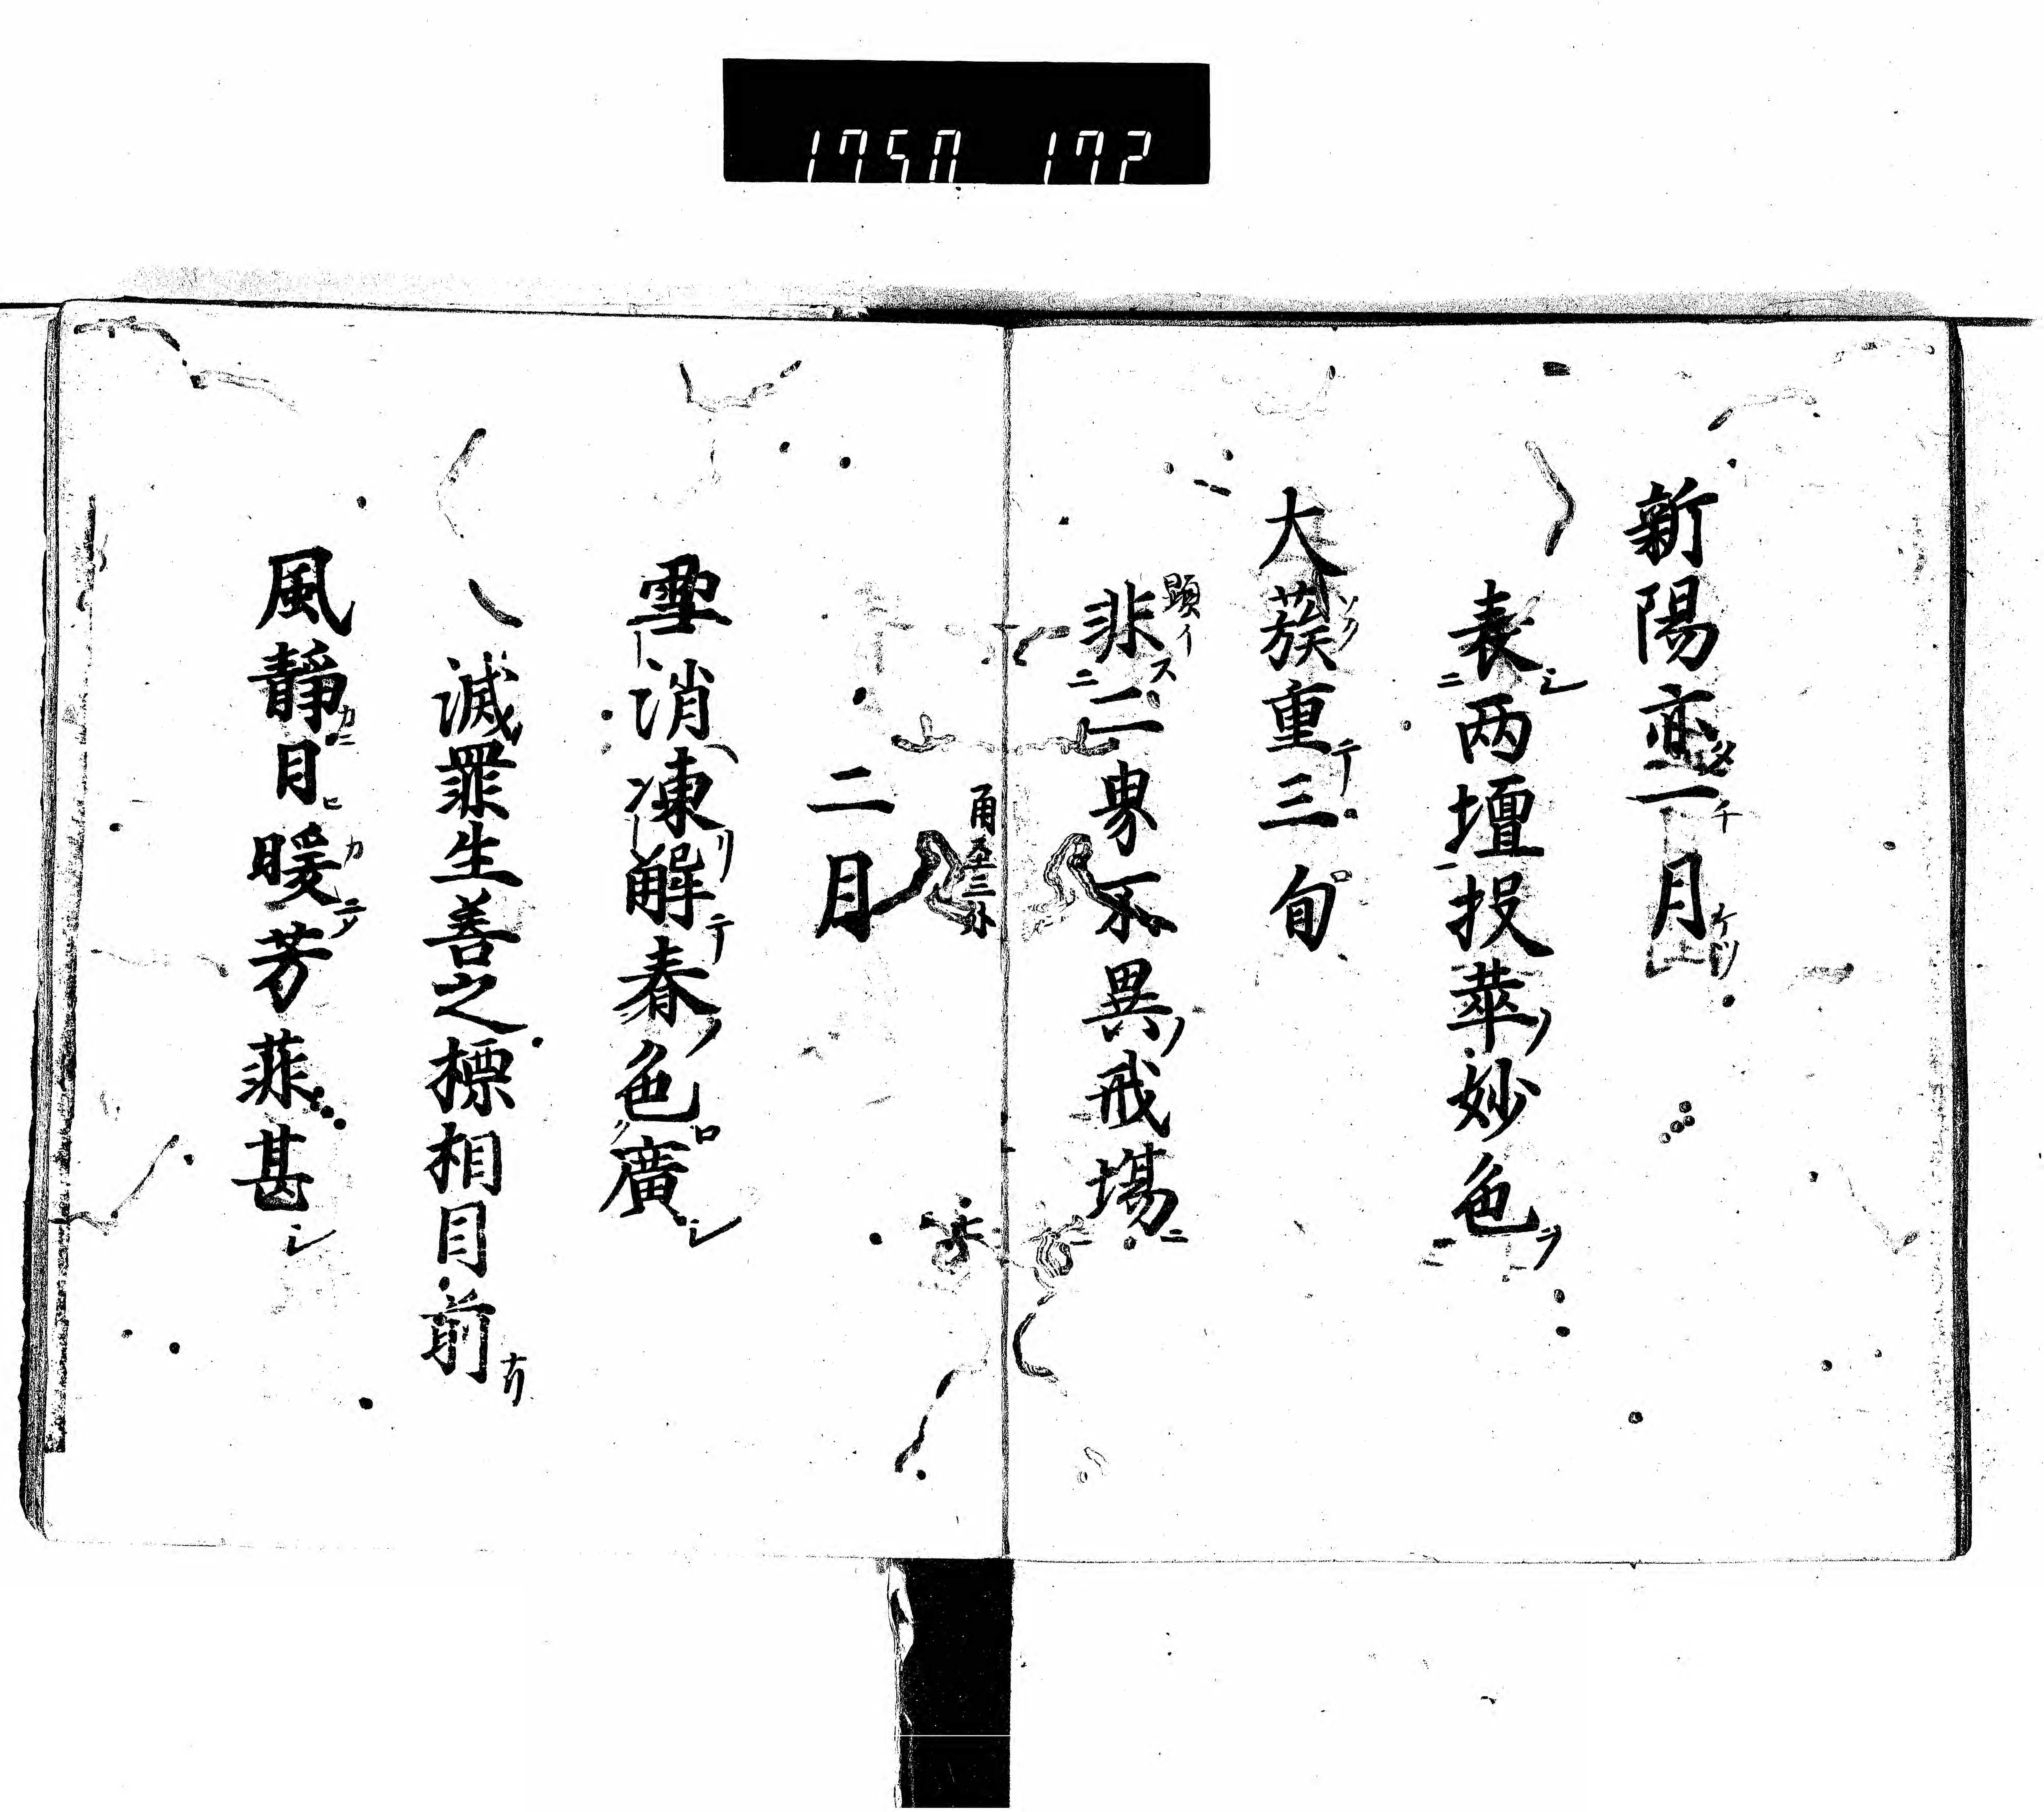 1750 172
新陽亟一月
表两壇投華妙色
大蔟重三旬
非二界不異戒場
顕イ
二月
雪消凍解春色廣
滅罪生善之標相目前
風靜日暖芳菲甚